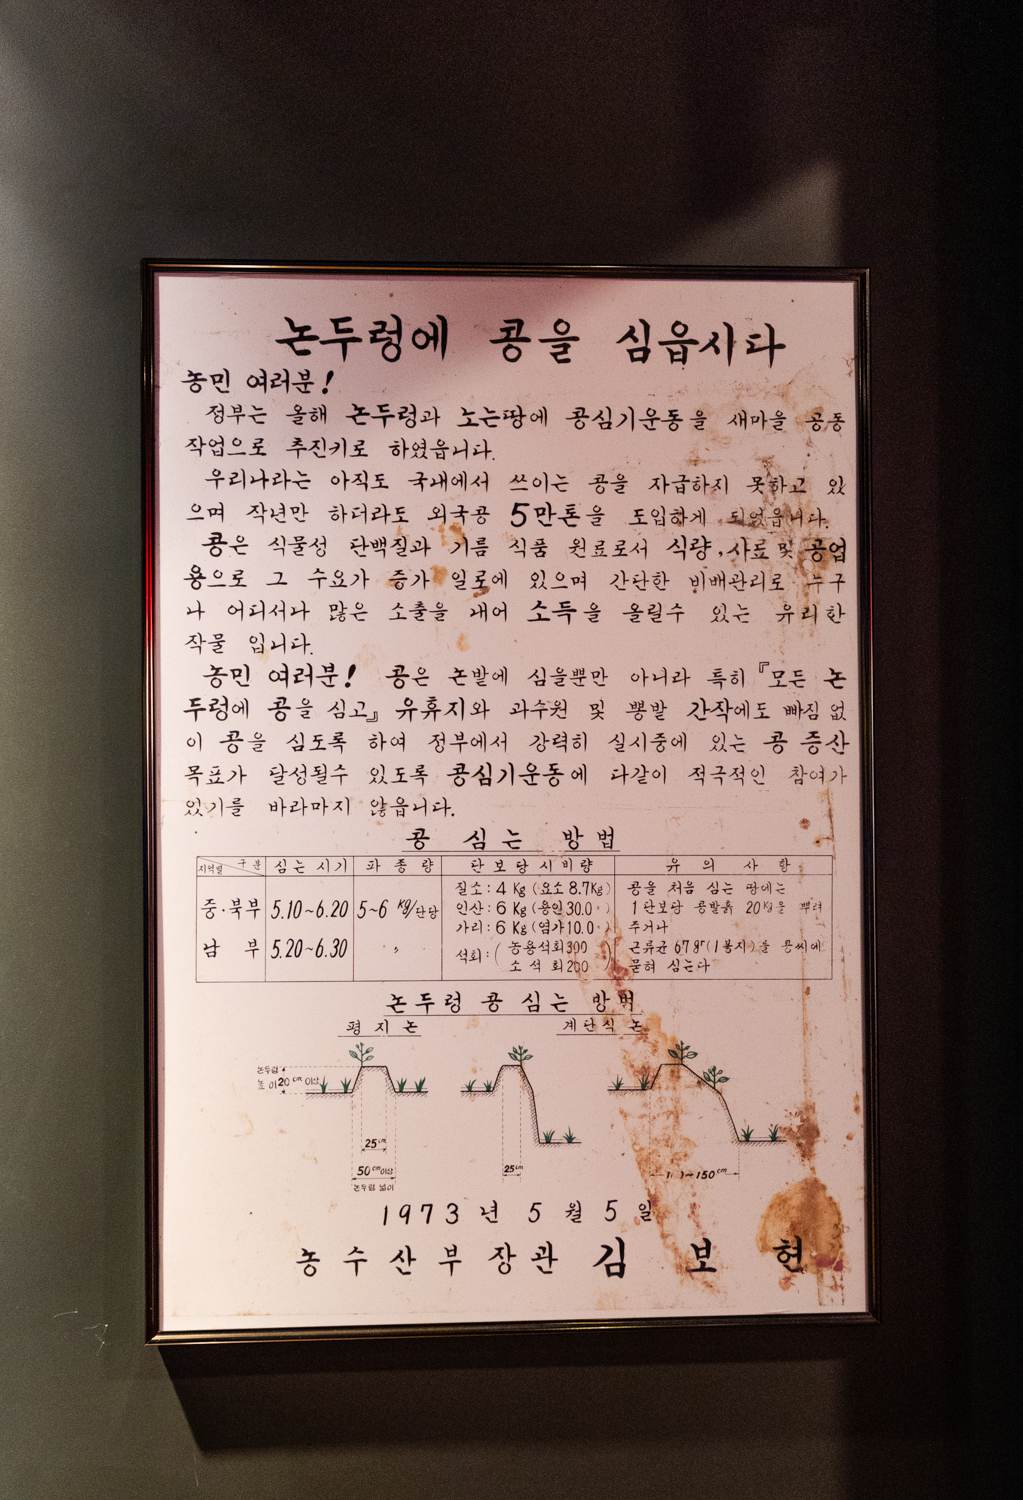 논두렁에 콩을 심읍시다
농민 여러분!
정부는 올해 논두렁과 노는땅에 콩심기운동을 새마을 공동
작업으로 추진키로 하였읍니다.
우리나라는 아직도 국내에서 쓰이는 콩을 자급하지 못하고 있
으며 작년만 하더라도 외국콩 5만톤을 도입하게 되었읍니다.
콩은 식물성 단백질과 기름 식품 원료로서 식량, 사료 및 공업
용으로 그 수요가 증가 일로에 있으며 간단한 비배관리로 누구
나 어디서나 많은 소출을 내어 소득을 올릴수 있는 유리한
작물 입니다.
농민 여러분! 콩은 논밭에 심을뿐만 아니라 특히 『모든 논
두렁에 콩을 심고』 유휴지와 과수원 및 뽕밭 간작에도 빠짐 없
이 콩을 심도록 하여 정부에서 강력히 실시중에 있는 콩 증산
목표가 달성될수 있도록 콩심기운동에 다같이 적극적인 참여가
있기를 바라마지 않읍니다.
콩 심는 방법
지역별 구분 심는시기 파종량 단보당시비량 유의사항
중·북부 5.10~6.20 5~6 kg/단당 질소:4 Kg (요소 8.7Kg) 콩을 처음 심는 땅에는
인산:6 Kg (용인 30.0 〃) 1단보당 콩밭흙 20Kg을 뿌려
가리:6 Kg (염가 10.0 〃) 주거나
남부 5.20~6.30 〃 석회:(농용석회 300 근류균 67gr(1봉지)을 콩씨에
소석회 200) 묻혀 심는다
논두렁 콩 심는 방법
평지논 계단식 논
논두렁
높이 20cm 이상
25cm
50cm이상
논두렁 넓이
25cm
~150cm
1973년 5월 5일
농수산부장관 김보현